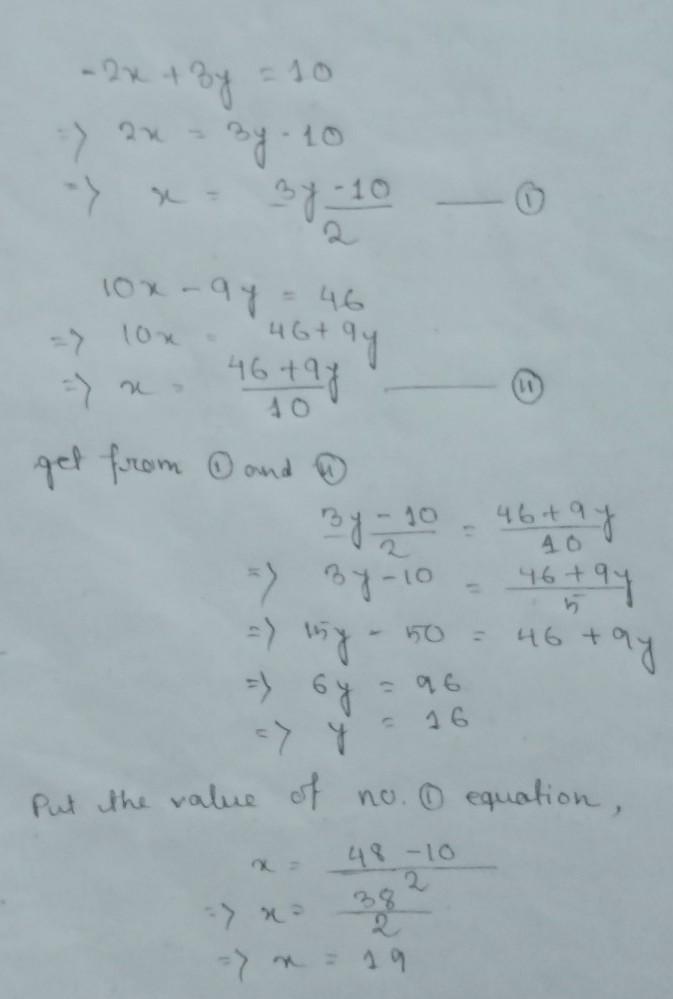 -2x + 3y = 10
=> 2x = 3y - 10
=> x = (3y - 10)/2 —— ①
10x - 9y = 46
=> 10x = 46 + 9y
=> x = (46 + 9y)/10 —— ⑪
get from ① and ⑪
(3y - 10)/2 = (46 + 9y)/10
=> 3y - 10 = (46 + 9y)/5
=> 15y - 50 = 46 + 9y
=> 6y = 96
=> y = 16
Put the value of no. ① equation,
x = (48 - 10)/2
=> x = 38/2
=> x = 19